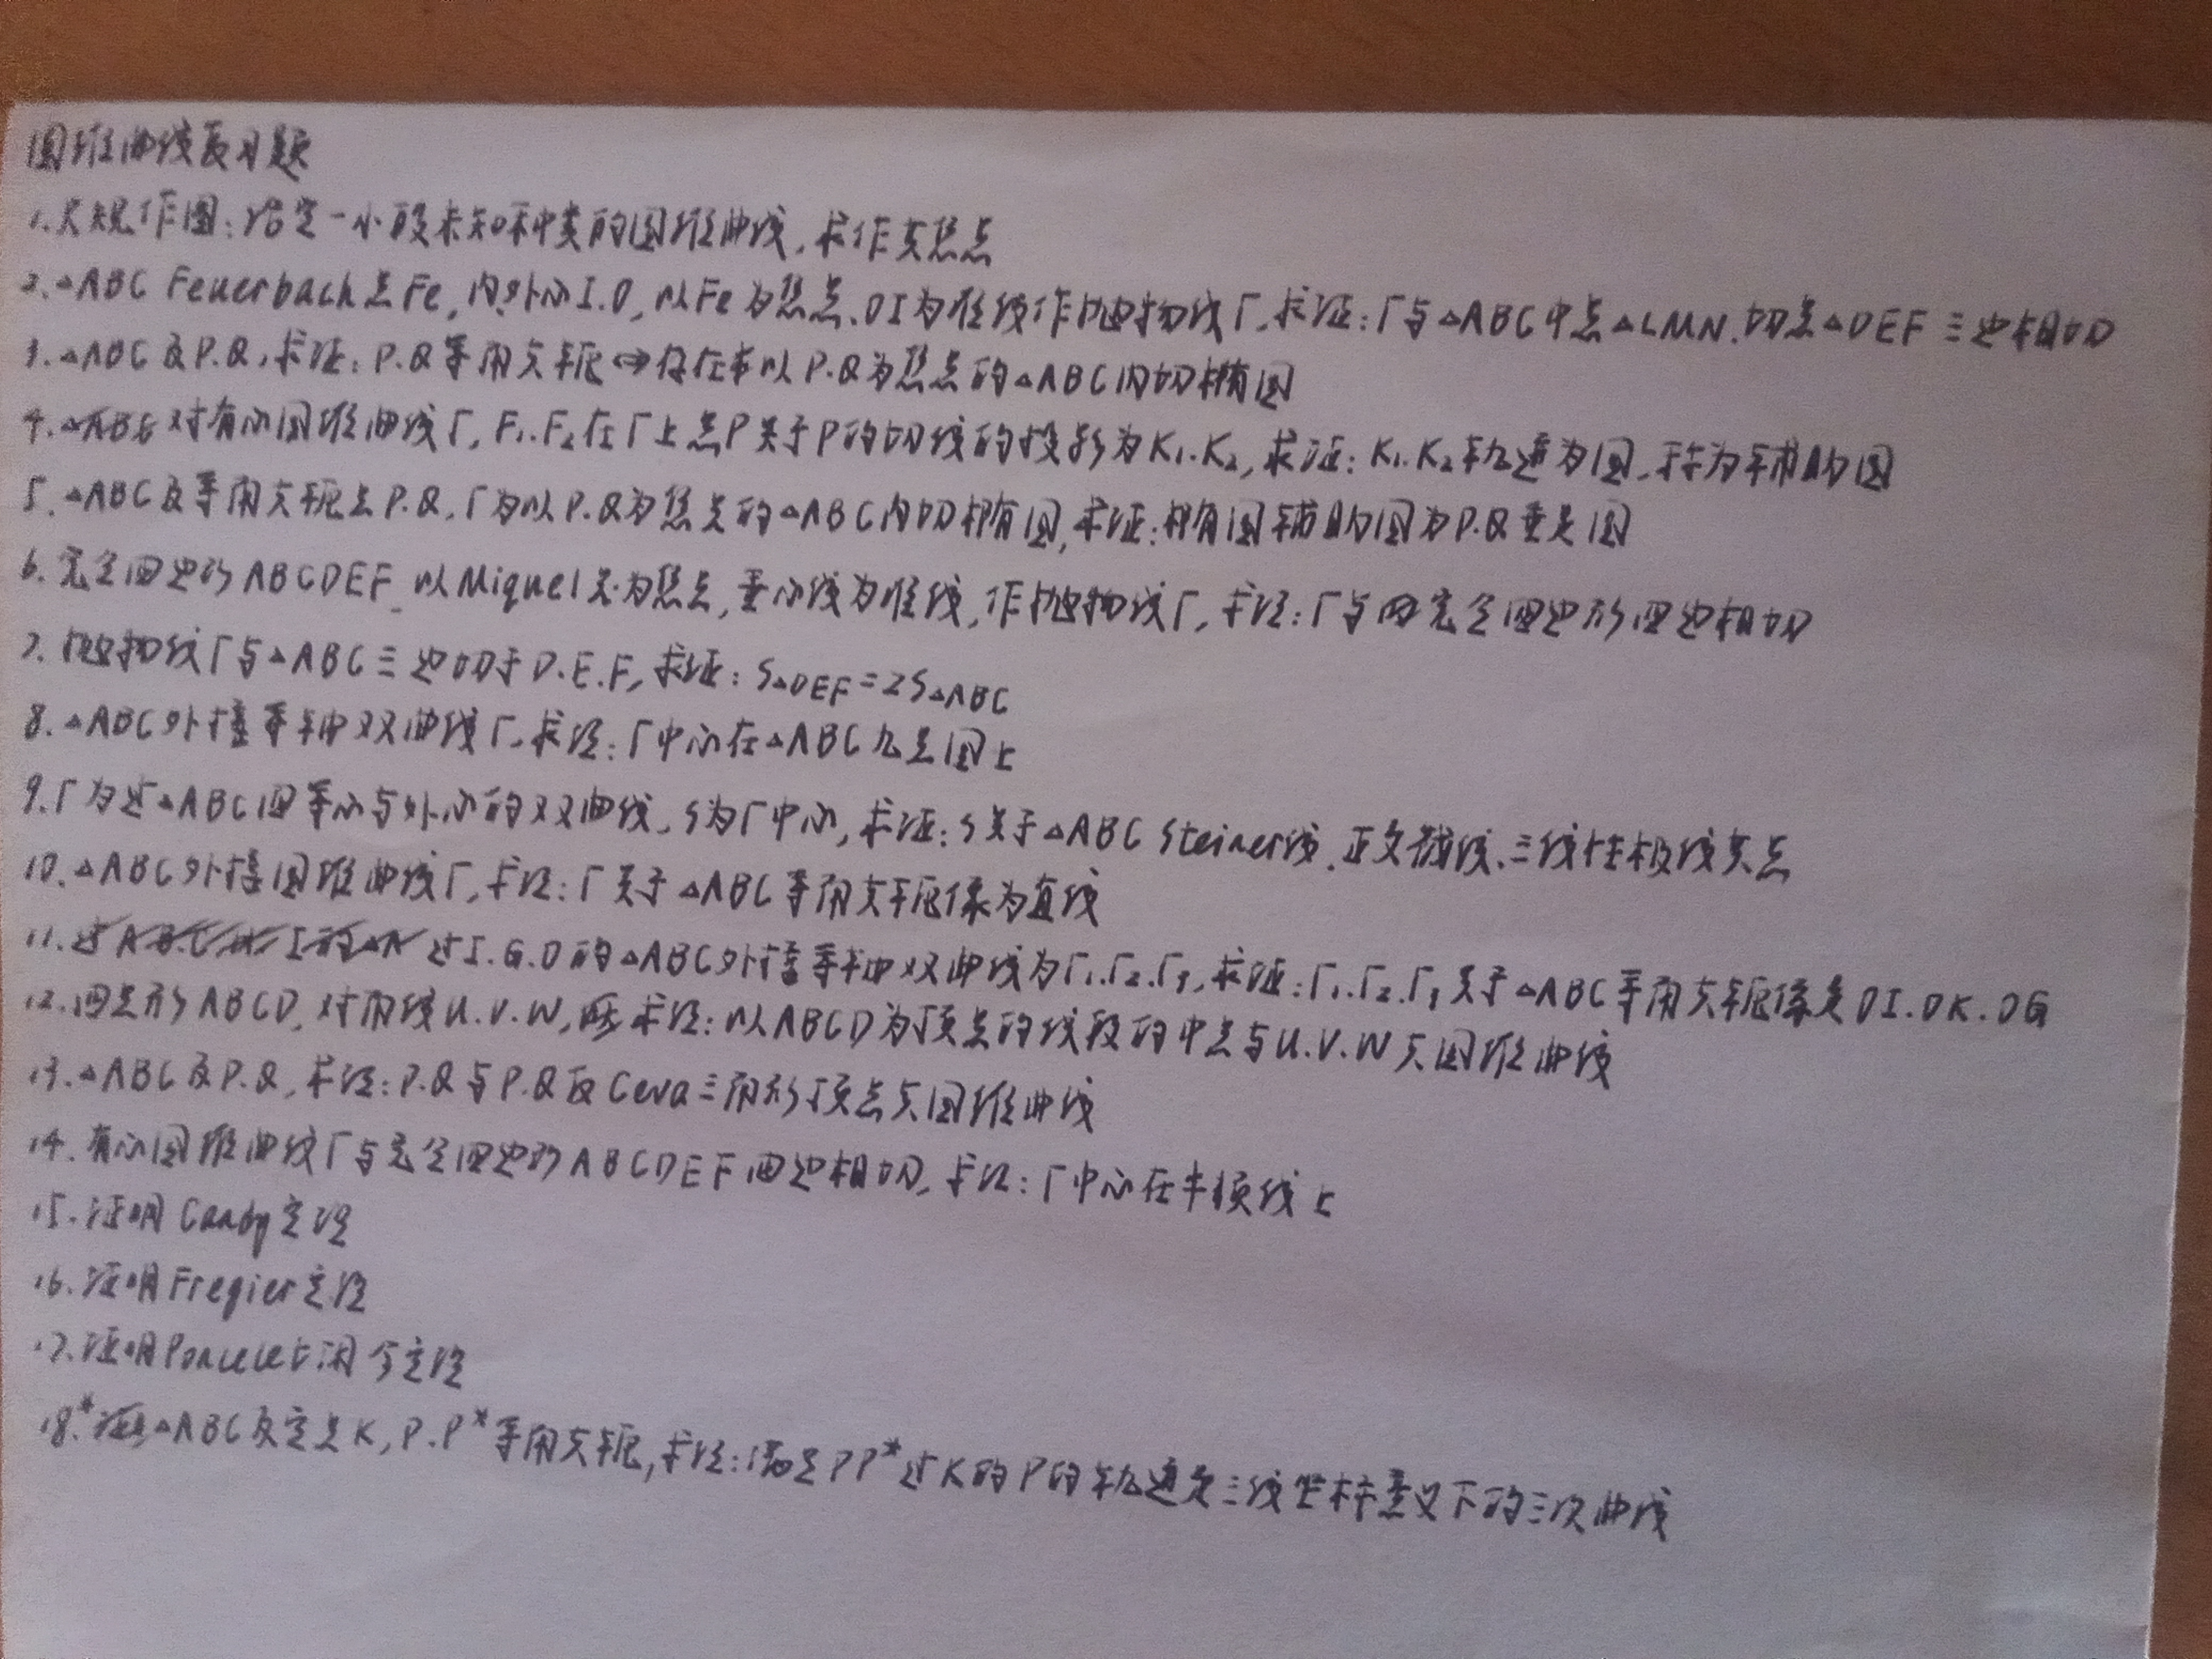 圆锥曲线复习题
1.尺规作图:给定一小段未知种类的圆锥曲线,求作其焦点
2.△ABC Feuerbach点Fe,内外心I.O,以Fe为焦点.OI为准线作抛物线Γ,求证:Γ与△ABC中点△LMN.切点△DEF三边相切
3.△ABC及P.Q,求证:P.Q等角共轭⇔存在以P.Q为焦点的△ABC内切椭圆
4.对有心圆锥曲线Γ,F₁.F₂在Γ上点P关于P的切线的投影为K₁.K₂,求证:K₁.K₂轨迹为圆,称为辅助圆
5.△ABC及等角共轭点P.Q,Γ为以P.Q为焦点的△ABC内切椭圆,求证:椭圆辅助圆为P.Q垂足圆
6.完全四边形ABCDEF,以Miquel点为焦点,垂心线为准线,作抛物线Γ,求证:Γ与完全四边形四边相切
7.抛物线Γ与△ABC三边切于D.E.F,求证:S△DEF=2S△ABC
8.△ABC外接等轴双曲线Γ,求证:Γ中心在△ABC九点圆上
9.Γ为过△ABC四等心与外心的双曲线,S为Γ中心,求证:S关于△ABC Steiner线.正交截线.三线性极线共点
10.△ABC外接圆锥曲线Γ,求证:Γ关于△ABC等角共轭像为直线
11.过I.G.O的△ABC外接等轴双曲线为Γ₁.Γ₂.Γ₃,求证:Γ₁.Γ₂.Γ₃关于△ABC等角共轭像是OI.OK.OG
12.四点形ABCD,对角线U.V.W,求证:以ABCD为顶点的线段的中点与U.V.W共圆锥曲线
13.△ABC及P.Q,求证:P.Q与P.Q反Ceva三角形顶点共圆锥曲线
14.有心圆锥曲线Γ与完全四边形ABCDEF四边相切,求证:Γ中心在牛顿线上
15.证明Candy定理
16.证明Fregier定理
17.证明Poncelet闭合定理
18.*△ABC及定点K,P.P*等角共轭,求证:满足PP*过K的P的轨迹是三线坐标意义下的三次曲线